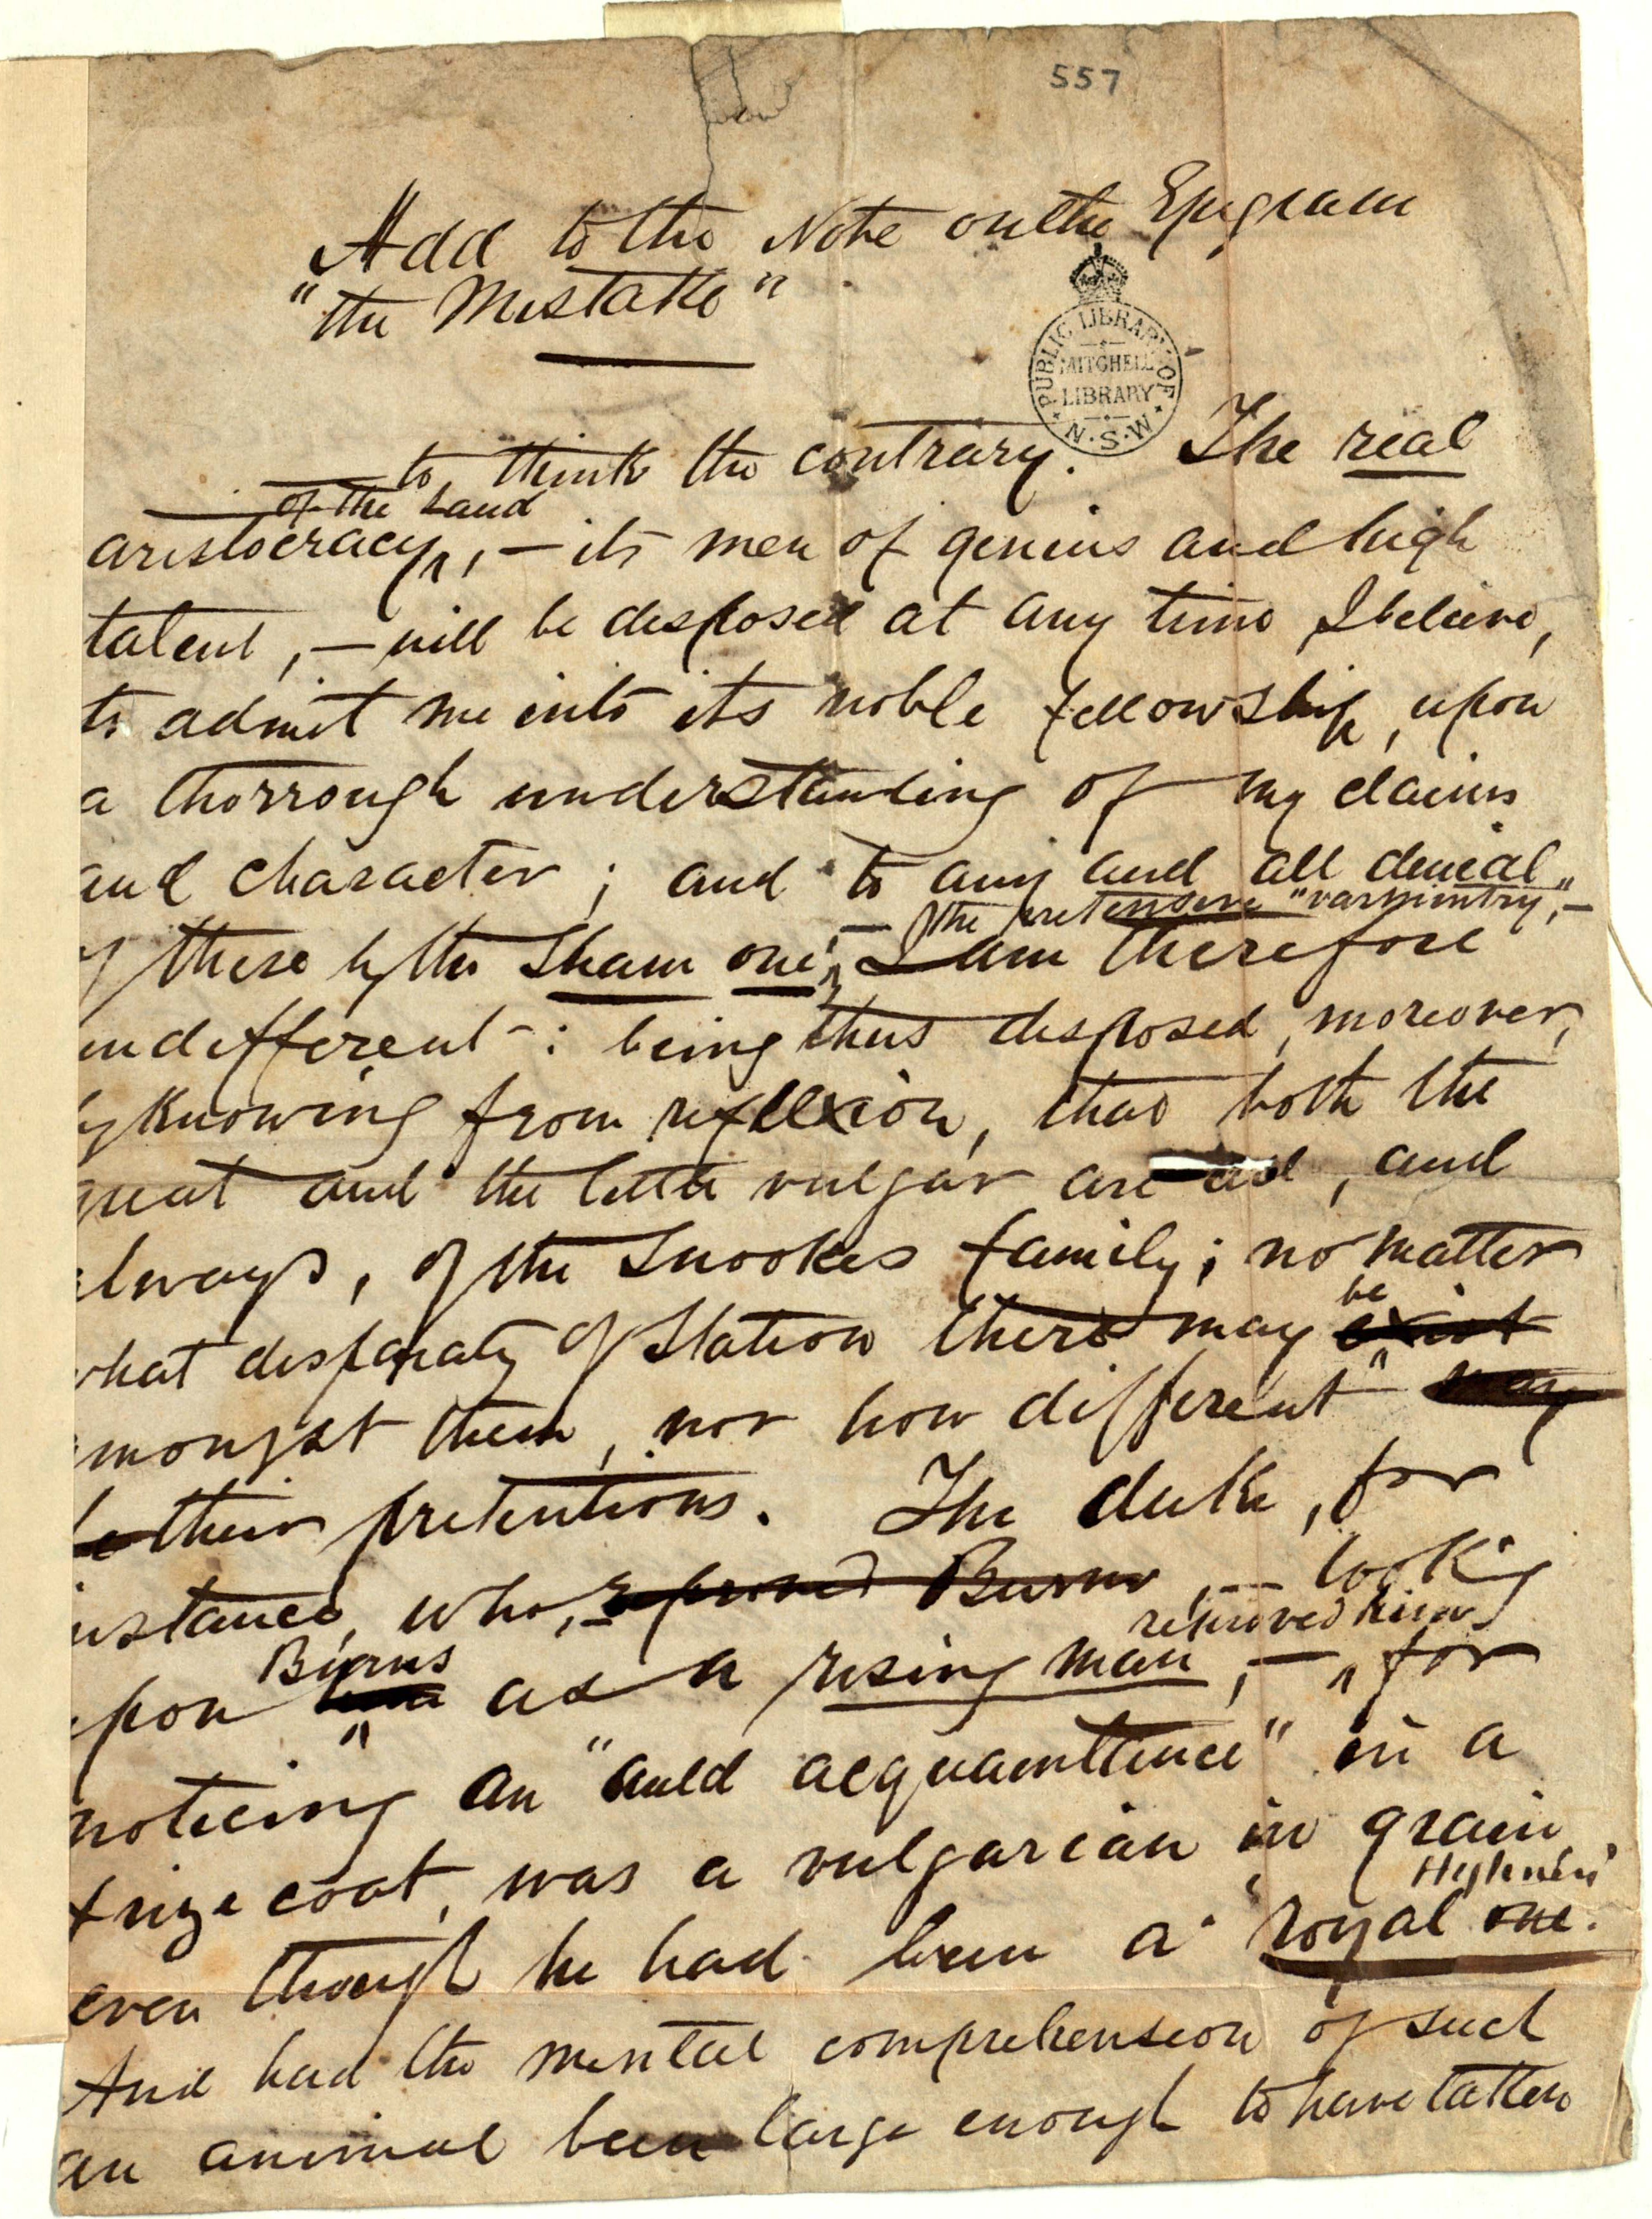 557
Add to the Note on the Epigram
"the Mistake"
PUBLIC LIBRARY OF N.S.W.
MITCHELL LIBRARY
to think the contrary. The real
of the Land
aristocracy, — its men of genius and high
talent, — will be disposed at any time I believe,
to admit me into its noble fellowship, upon
a thorrough understanding of my claims
and character; and to any and all denial
— the pretensive "varmintry", —
of these by the sham one; I am therefore
indifferent: being thus disposed, moreover,
by knowing from reflexion, that both the
great and the little vulgar are all, and
always, of the Snookes family; no matter
be
what disparaty of station there may exist
amongst them, nor how different may
be their pretentions. The duke, for
instance, who, reproved Burns, — looking
reproved him
Burns
upon him as a rising man, — for
noticing an "auld acquaintance" in a
frize coat, was a vulgarian in grain,
Highness
even though he had been a royal one.
And had the mental comprehension of such
an animal been large enough to have taken